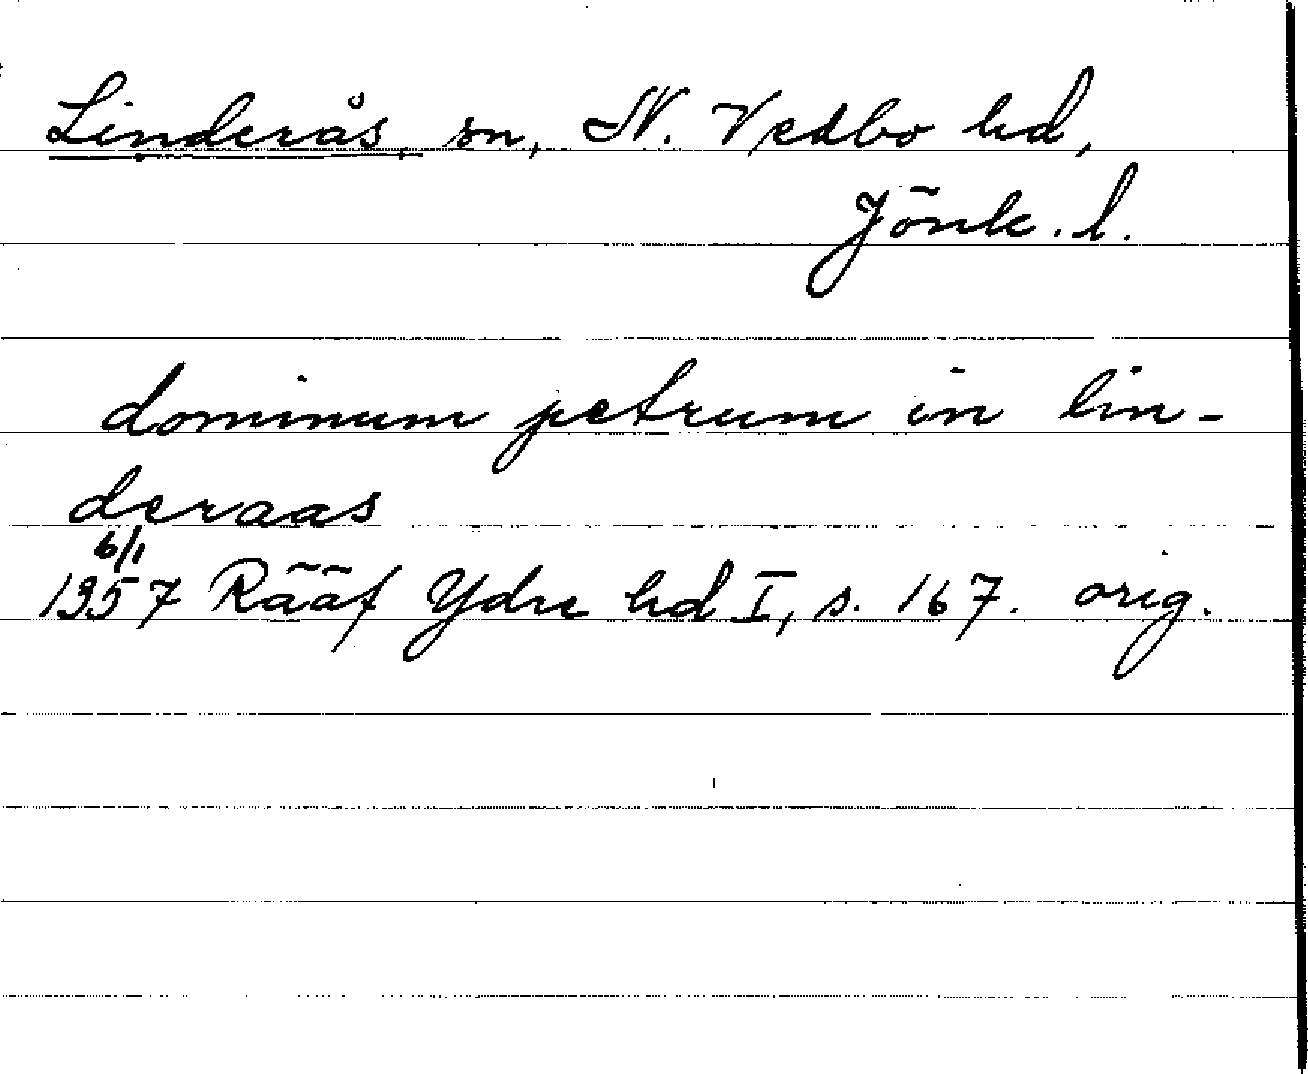 Linderås, sn, N. Vedbo hd,
Jönk. l.
dominum petrum in lin-
deraas
6/1
1357 Rääf Ydre hd I, s. 167. orig.